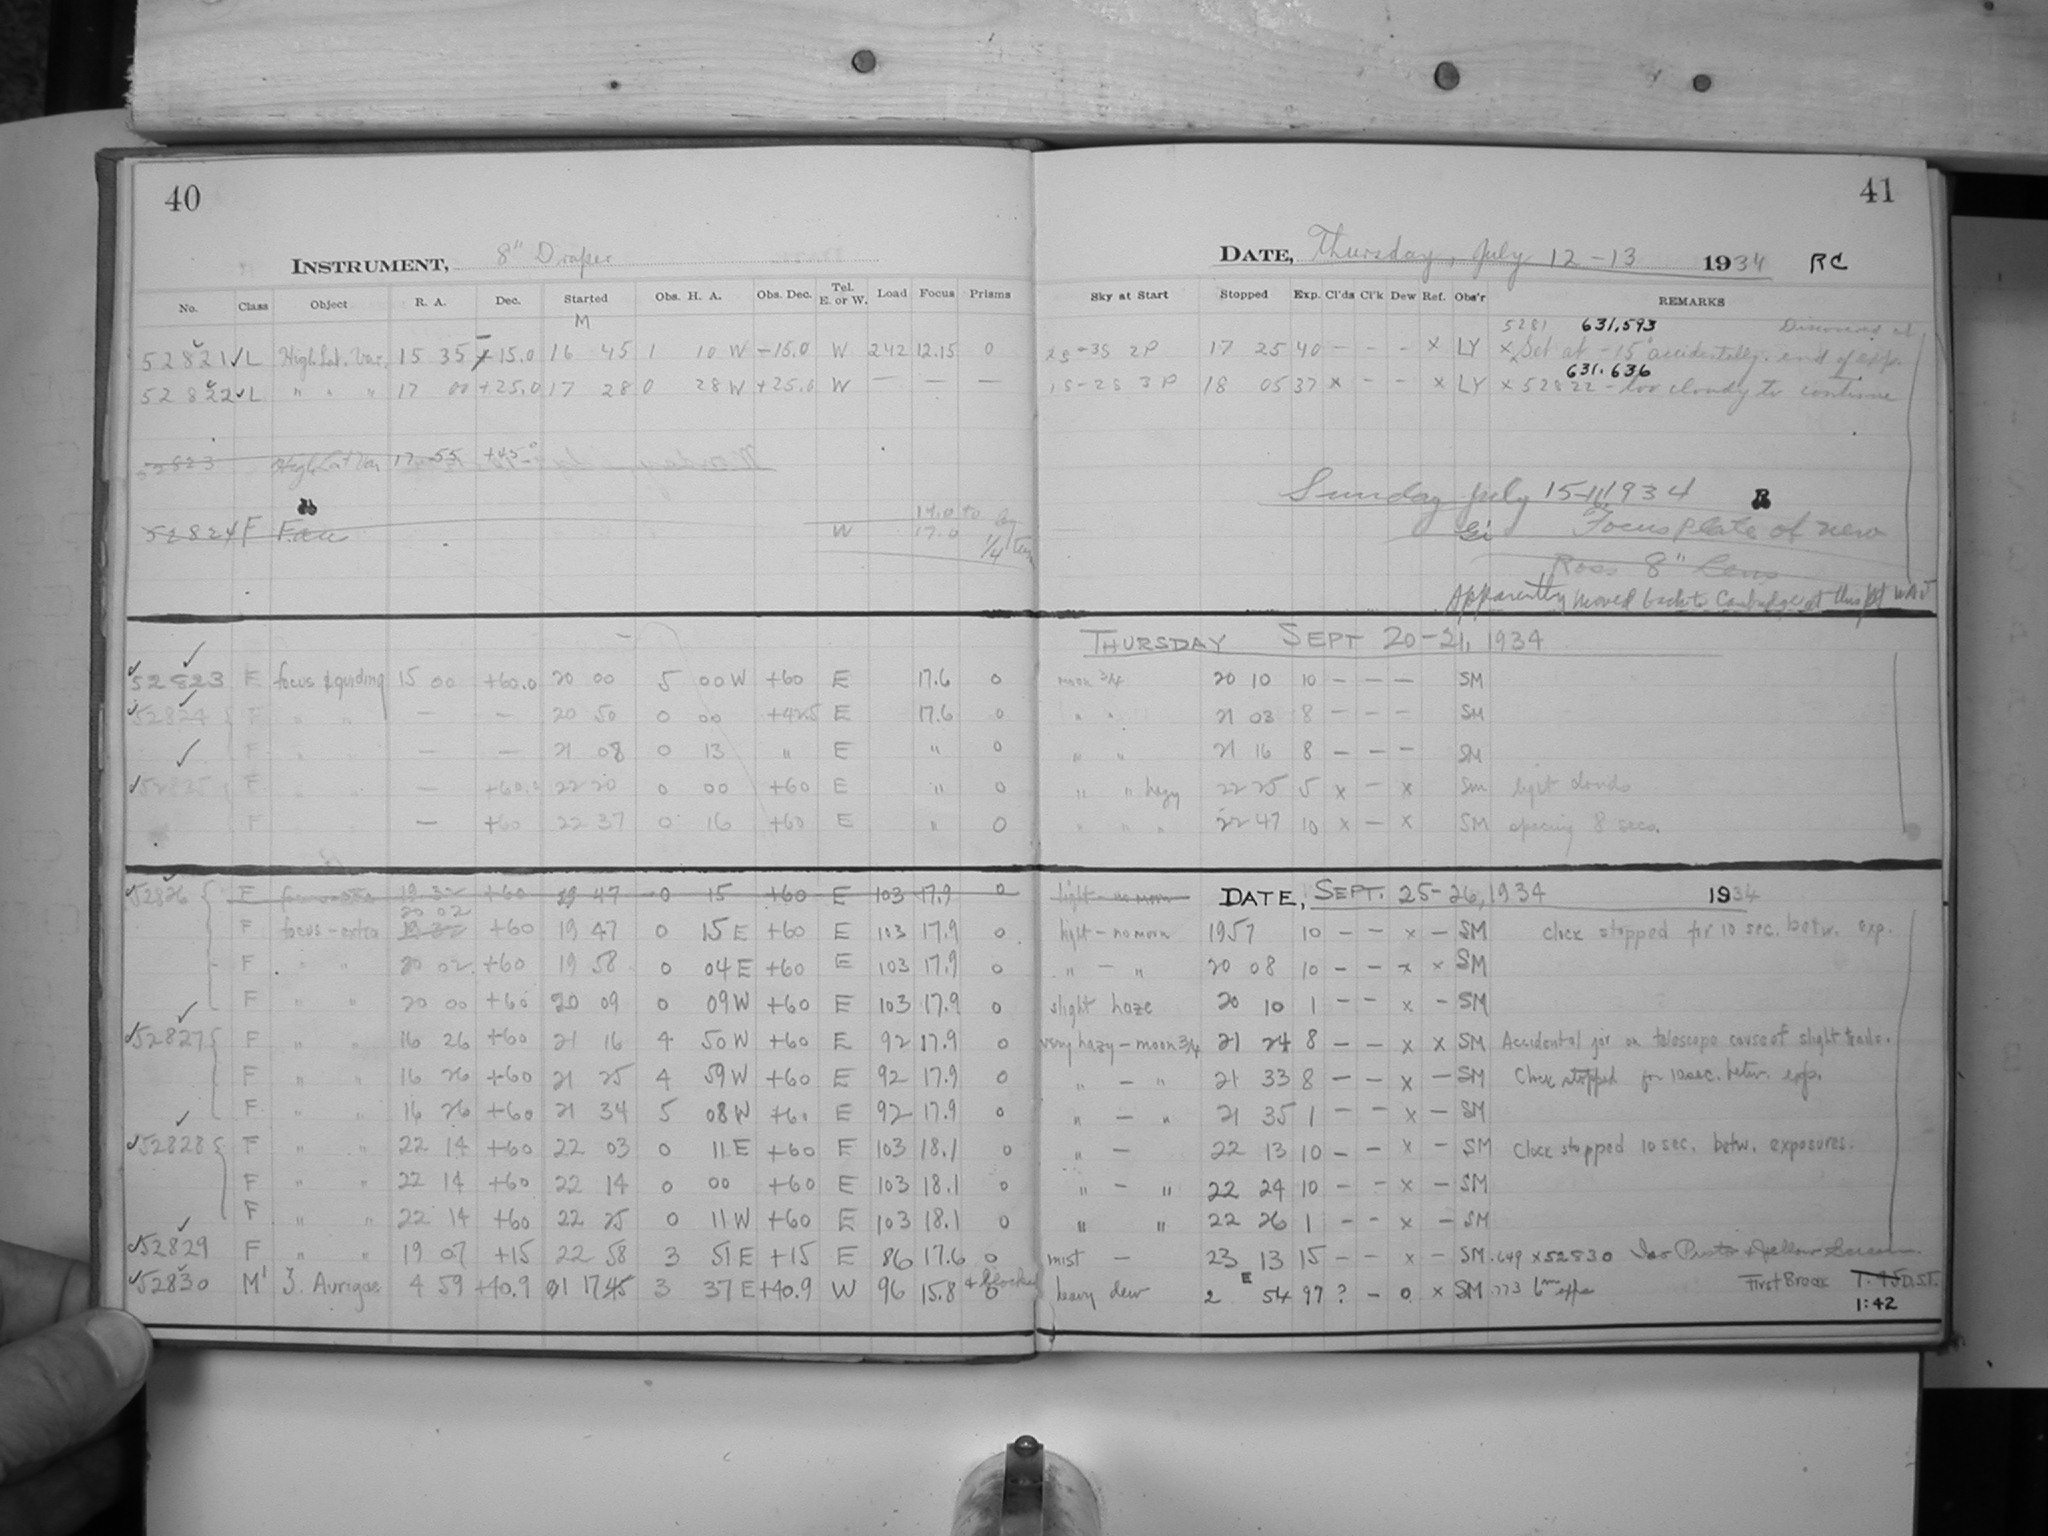 40
41
INSTRUMENT, 8" Draper
DATE, Thursday, July 12-13 1934 RC
No. Class Object R. A. Dec. Started Obs. H. A. Obs. Dec. Tel. E. or W. Load Focus Prisms Sky at Start Stopped Exp. Cl'ds Cl'k Dew Ref. Obs'r REMARKS
M
5281 631,593 Discovered at
52821 L High Lat. Var. 15 35 -15.0 16 45 1 10 W -15.0 W 242 12.15 0 2S-3S 2P 17 25 40 - - - x LY x Set at -15° accidentally. end of exp.
631,636
52822 L " " " 17 00 +25.0 17 28 0 28 W +25.0 W - - - 1S-2S 3P 18 05 37 x - - x LY x 52822 - too cloudy to continue
52823 High Lat Var 17 55 +45°
Sunday July 15- 1934
52824 F W 17.0 to 17.0 by 1/4 turn Focus plate of new
Ross 8" Lens
Apparently moved back to Cambridge at this pt WAJ
THURSDAY SEPT 20-21, 1934
52823 F focus & guiding 15 00 +60.0 20 00 5 00 W +60 E 17.6 0 moon 3/4 20 10 10 - - - SM
52824 F " " - - 20 50 0 00 +42.5 E 17.6 0 " " 21 03 8 - - - SM
F " " - - 21 08 0 13 " E " 0 " " 21 16 8 - - - SM
52825 F " " - +60.0 22 20 0 00 +60 E " 0 " " hazy 22 25 5 x - x SM light clouds
F " - +60 22 37 0 16 +60 E " 0 " " " 22 47 10 x - x SM opening 8 secs.
52826 F focus-extra 19 32 +60 19 47 0 15 +60 E 103 17.9 0 light - no moon DATE, SEPT. 25-26, 1934 1934
20 02
F focus-extra 19 32 +60 19 47 0 15 E +60 E 103 17.9 0 light - no moon 19 57 10 - - x - SM Clock stopped for 10 sec. betw. exp.
F " " 20 02 +60 19 58 0 04 E +60 E 103 17.9 0 " - " 20 08 10 - - x x SM
F " " 20 00 +60 20 09 0 09 W +60 E 103 17.9 0 slight haze 20 10 1 - - x - SM
52827 F " " 16 26 +60 21 16 4 50 W +60 E 92 17.9 0 very hazy - moon 3/4 21 24 8 - - x x SM Accidental jar on telescope cause of slight trails.
F " " 16 26 +60 21 25 4 59 W +60 E 92 17.9 0 " - " 21 33 8 - - x - SM Clock stopped for 10 sec. betw. exp.
F " " 16 26 +60 21 34 5 08 W +60 E 92 17.9 0 " - " 21 35 1 - - x - SM
52828 F " " 22 14 +60 22 03 0 11 E +60 E 103 18.1 0 " - 22 13 10 - - x - SM Clock stopped 10 sec. betw. exposures.
F " " 22 14 +60 22 14 0 00 +60 E 103 18.1 0 " - " 22 24 10 - - x - SM
F " " 22 14 +60 22 25 0 11 W +60 E 103 18.1 0 " " 22 26 1 - - x - SM
52829 F " " 19 07 +15 22 58 3 51 E +15 E 86 17.6 0 mist - 23 13 15 - - x - SM .649 x52830 Yellow Screen
52830 M' ζ Aurigae 4 59 +40.9 01 17 45 3 37 E +40.9 W 96 15.8 0 heavy dew 2 E 54 97 ? - 0 x SM .773 6m exps First Break D.S.T.
1:42